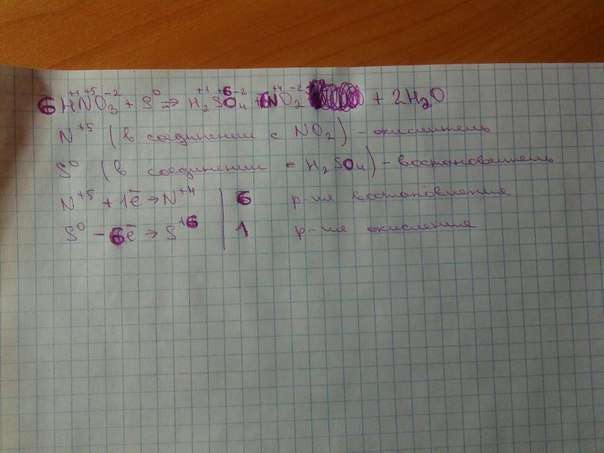 6HN⁺⁵O₃⁻² + S⁰ ⇒ H₂⁺¹S⁺⁶O₄⁻² + 6N⁺⁴O₂⁻² + 2H₂O
N⁺⁵ (в соединении с NO₂) – окислитель
S⁰ (в соединении с H₂SO₄) – восстановитель
N⁺⁵ + 1ē → N⁺⁴ | 6 р-ия восстановления
S⁰ – 6ē → S⁺⁶ | 1 р-ия окисления